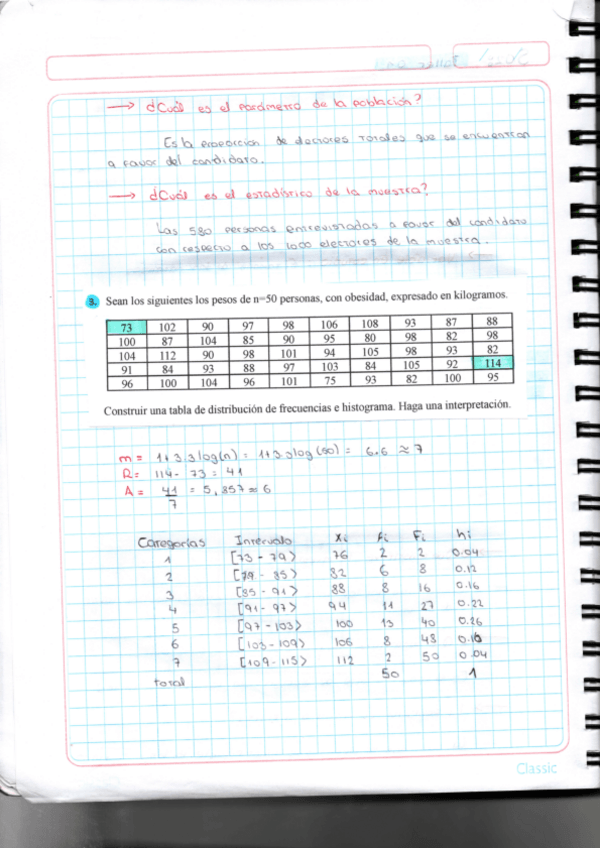 → ¿Cuál es el parámetro de la población?
Es la proporción de electores totales que se encuentran
a favor del candidato.
→ ¿Cuál es el estadístico de la muestra?
Las 580 personas entrevistadas a favor del candidato
con respecto a los 1000 electores de la muestra.
3. Sean los siguientes los pesos de n=50 personas, con obesidad, expresado en kilogramos.
73 102 90 97 98 106 108 93 87 88
100 87 104 85 90 95 80 98 82 98
104 112 90 98 101 94 105 98 93 82
91 84 93 88 97 103 84 105 92 114
96 100 104 96 101 75 93 82 100 95
Construir una tabla de distribución de frecuencias e histograma. Haga una interpretación.
m = 1+3.3log(n) = 1+3.3log(50) = 6.6 ≈ 7
R = 114 - 73 = 41
A = 41/7 = 5,857 ≈ 6
Categorías Intervalo Xi fi Fi hi
1 [73 - 79> 76 2 2 0.04
2 [79 - 85> 82 6 8 0.12
3 [85 - 91> 88 8 16 0.16
4 [91 - 97> 94 11 27 0.22
5 [97 - 103> 100 13 40 0.26
6 [103 - 109> 106 8 48 0.16
7 [109 - 115> 112 2 50 0.04
total 50 1
Classic